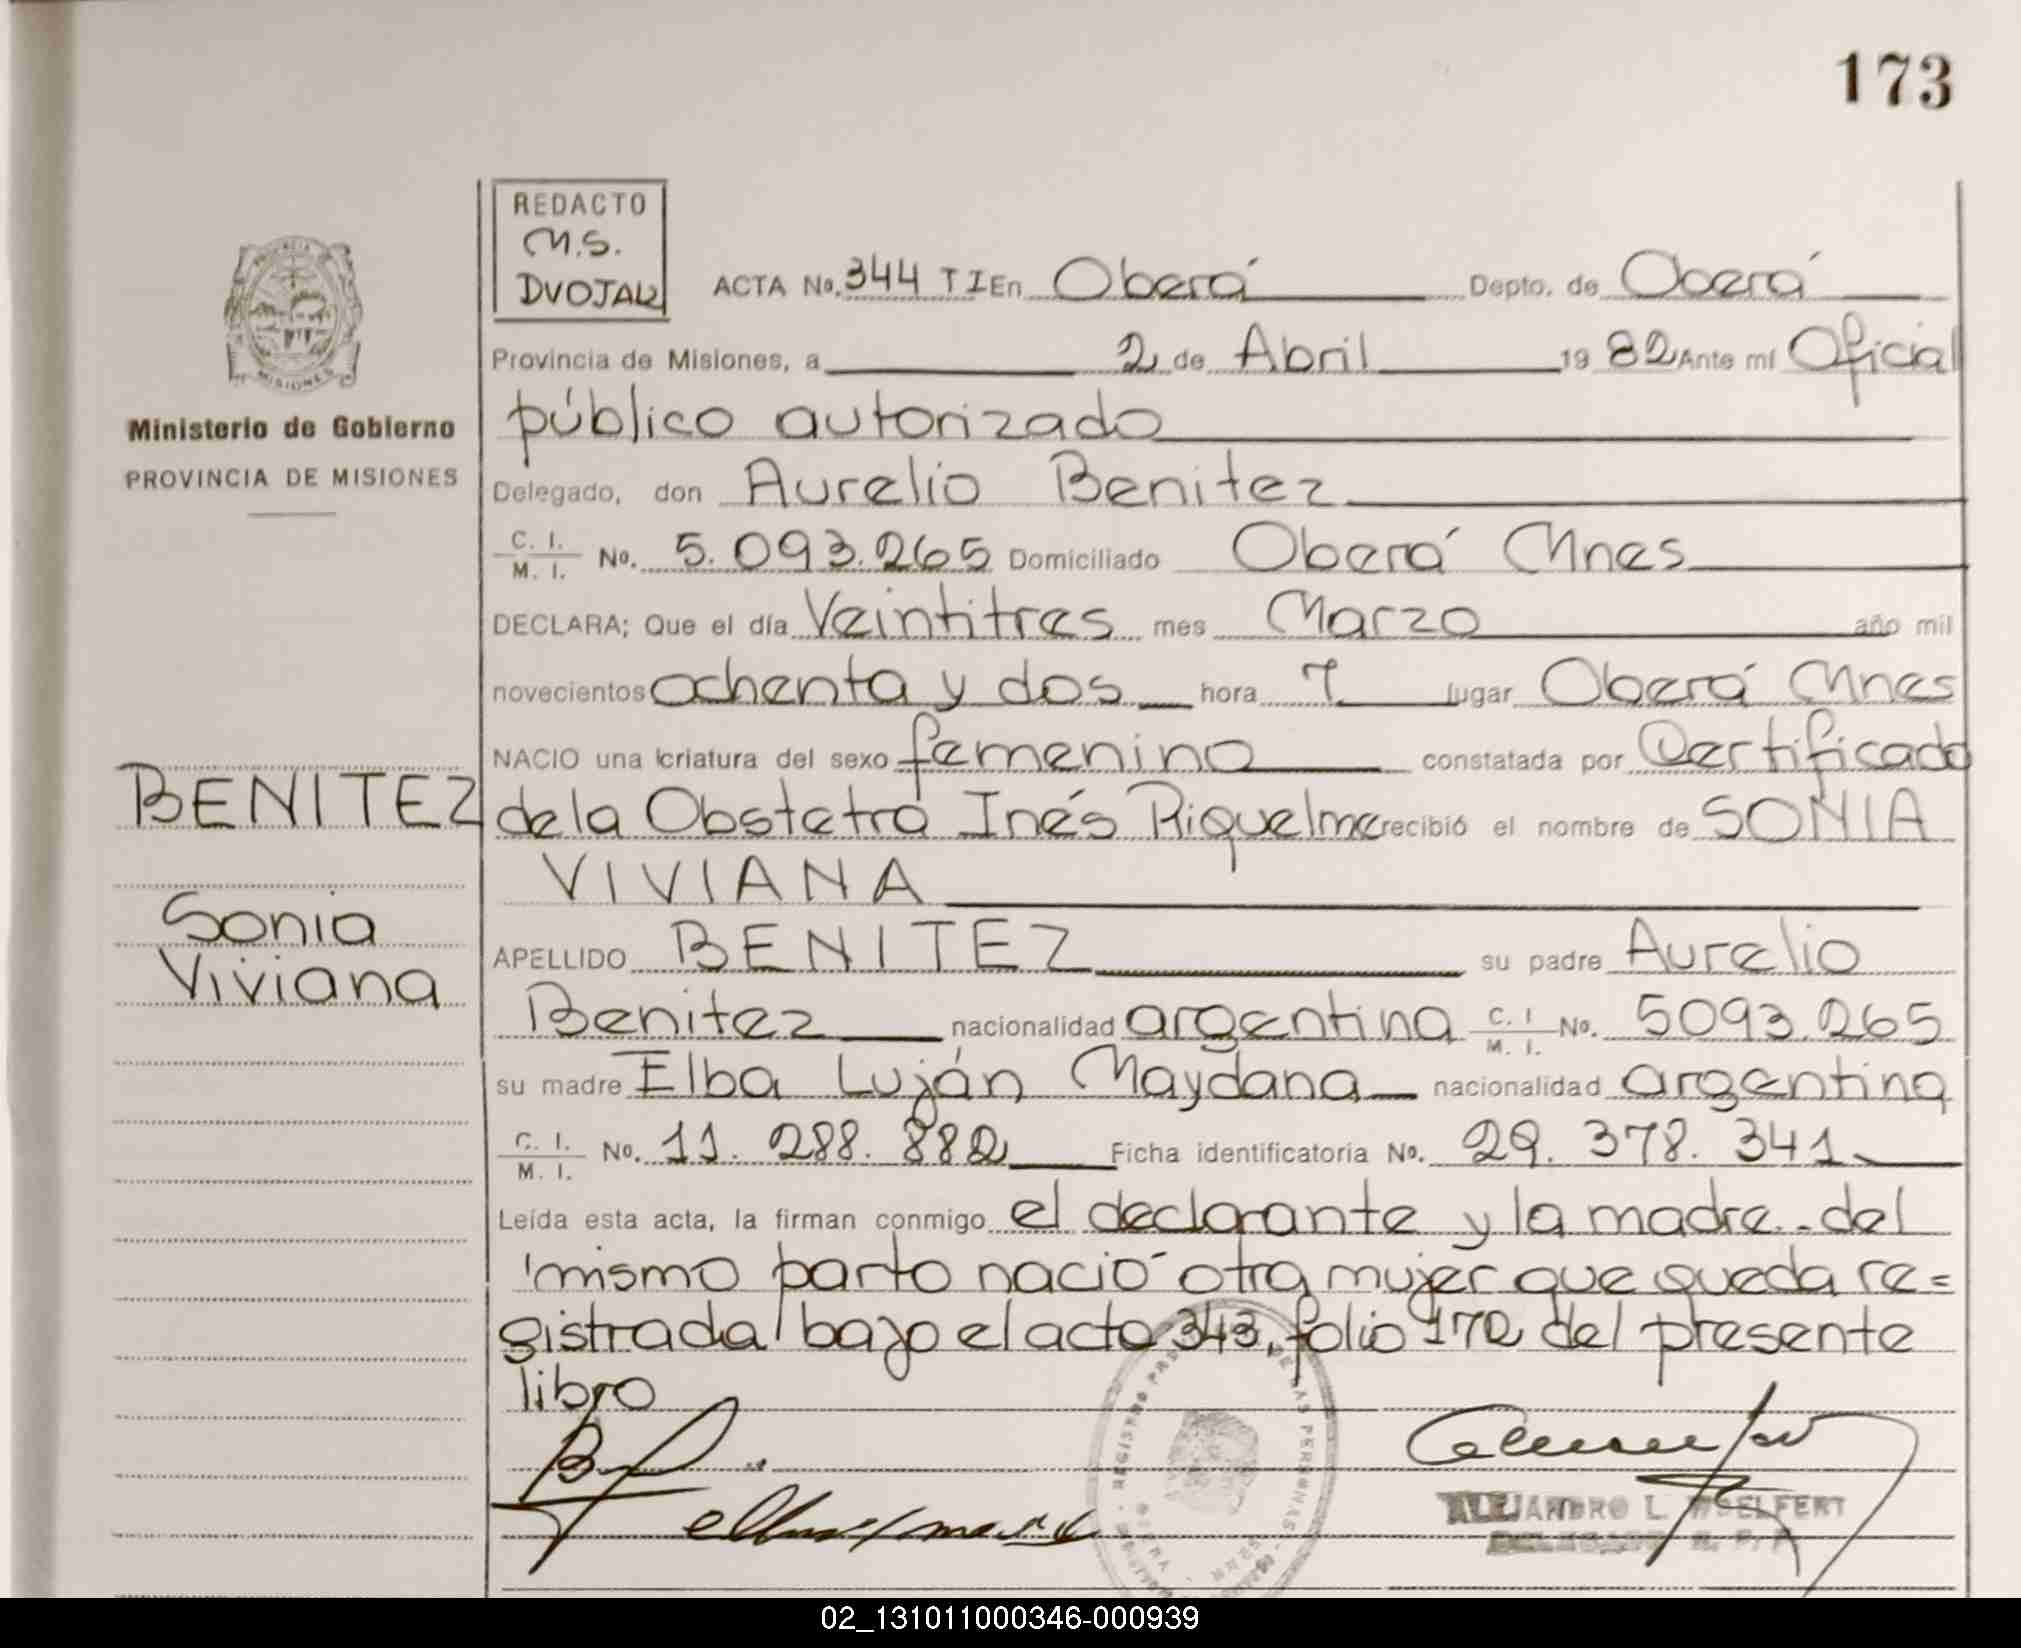 173
REDACTO
M.S.
DVOJAK
ACTA No. 344 T I En Oberá Depto. de Oberá
Provincia de Misiones, a 2 de Abril 1982 Ante mí Oficial
público autorizado
Delegado, don Aurelio Benitez
C. I. / M. I. No. 5.093.265 Domiciliado Oberá Mnes
DECLARA; Que el día Veintitres mes Marzo año mil
novecientos ochenta y dos hora 7 lugar Oberá Mnes
NACIO una criatura del sexo femenino constatada por Certificado
de la Obstetra Inés Riquelme recibió el nombre de SONIA
VIVIANA
APELLIDO BENITEZ su padre Aurelio
Benitez nacionalidad argentina C. I / M. I. No. 5093.265
su madre Elba Luján Maydana nacionalidad argentina
C. I. / M. I. No. 11. 288. 882 Ficha identificatoria No. 29. 378. 341
Leída esta acta, la firman conmigo el declarante y la madre. del
mismo parto nació otra mujer que queda re=
gistrada bajo el acta 343, folio 172 del presente
libro
PROVINCIA
MISIONES
Ministerio de Gobierno
PROVINCIA DE MISIONES
BENITEZ
Sonia
Viviana
REGISTRO DE LAS PERSONAS
ALEJANDRO L. WOELFERT
DELEGADO R. P. P.
02_131011000346-000939